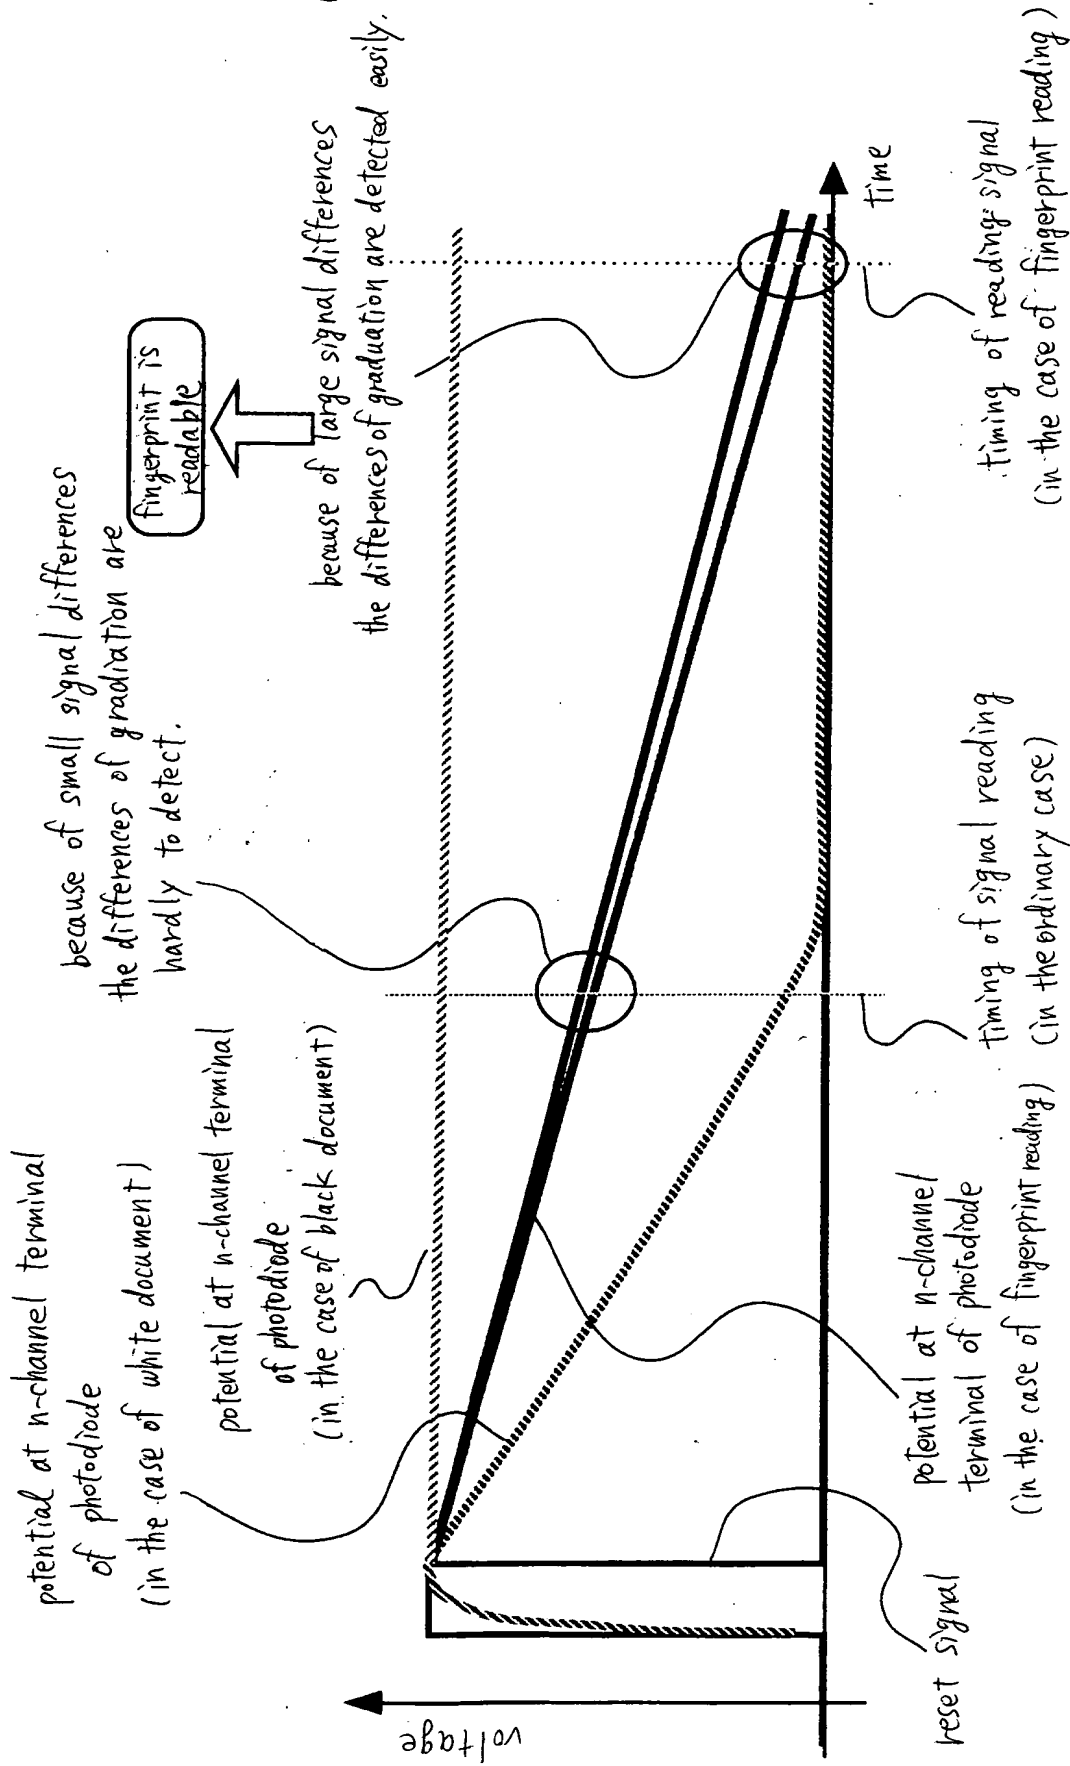 potential at n-channel terminal
of photodiode
(in the case of white document)
potential at n-channel terminal
of photodiode
(in the case of black document)
because of small signal differences
the differences of gradiation are
hardly to detect.
fingerprint is
readable
because of large signal differences
the differences of graduation are detected easily.
voltage
time
reset signal
potential at n-channel
terminal of photodiode
(in the case of fingerprint reading)
timing of signal reading
(in the ordinary case)
timing of reading signal
(in the case of fingerprint reading)